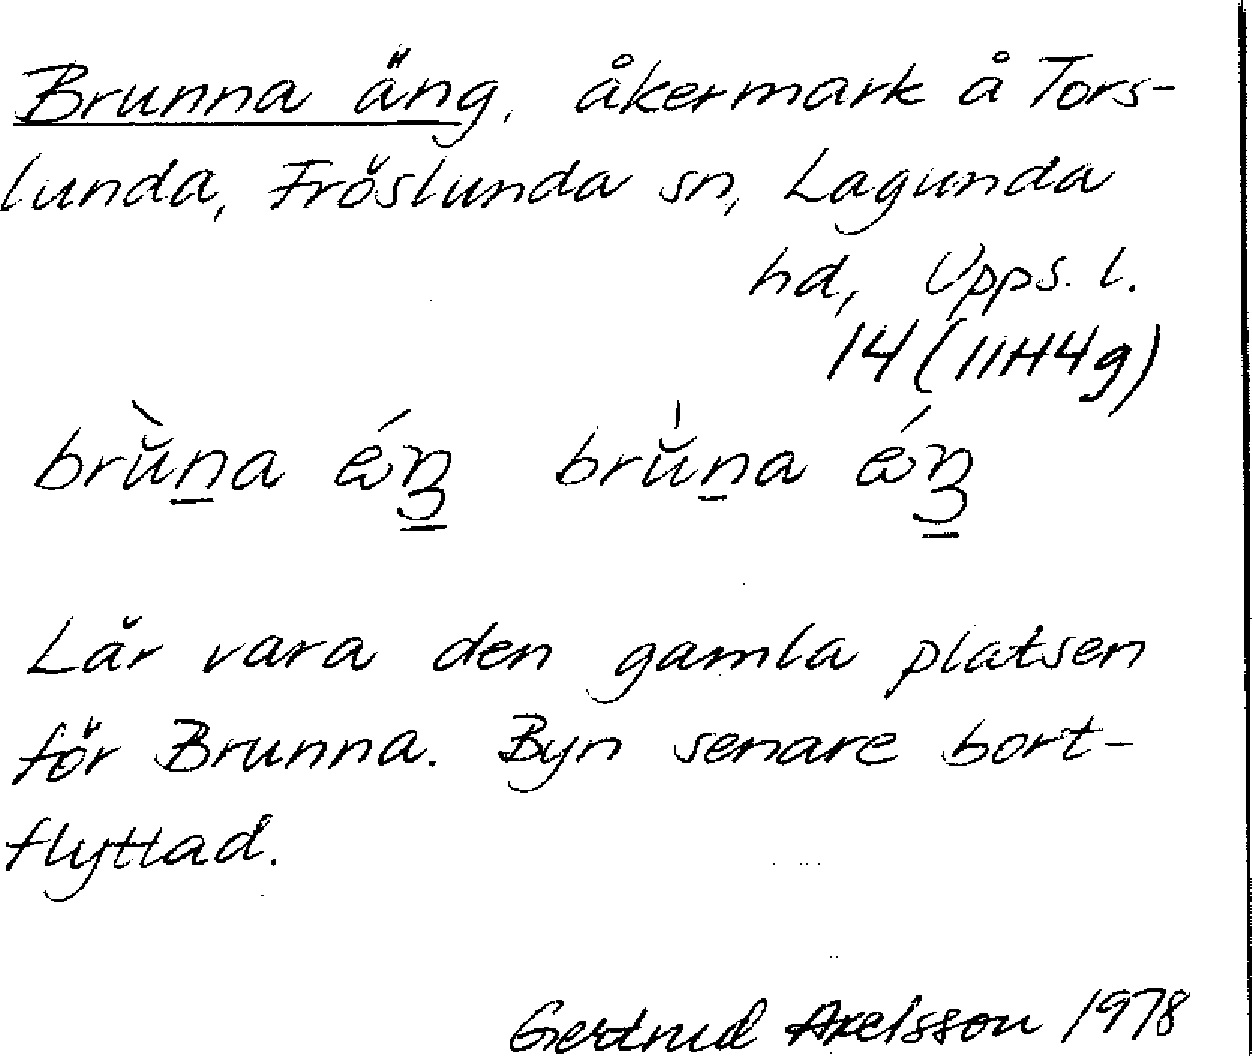 Brunna äng, åkermark å Tors-
lunda, Fröslunda sn, Lagunda
hd, Upps. l.
14 (11H4g)
brùna éŋ brúna éŋ
Lär vara den gamla platsen
för Brunna. Byn senare bort-
flyttad.
Gertrud Axelsson 1978